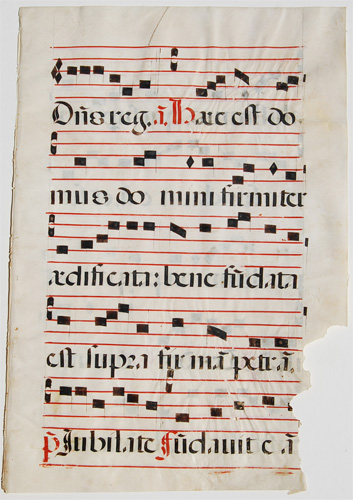 Dñs reg.ã. Haec est do
mus do mini firmiter
ædificata: bene fũdata
est supra fir mã petrã.
p̃ Iubilate Fũdavit eã